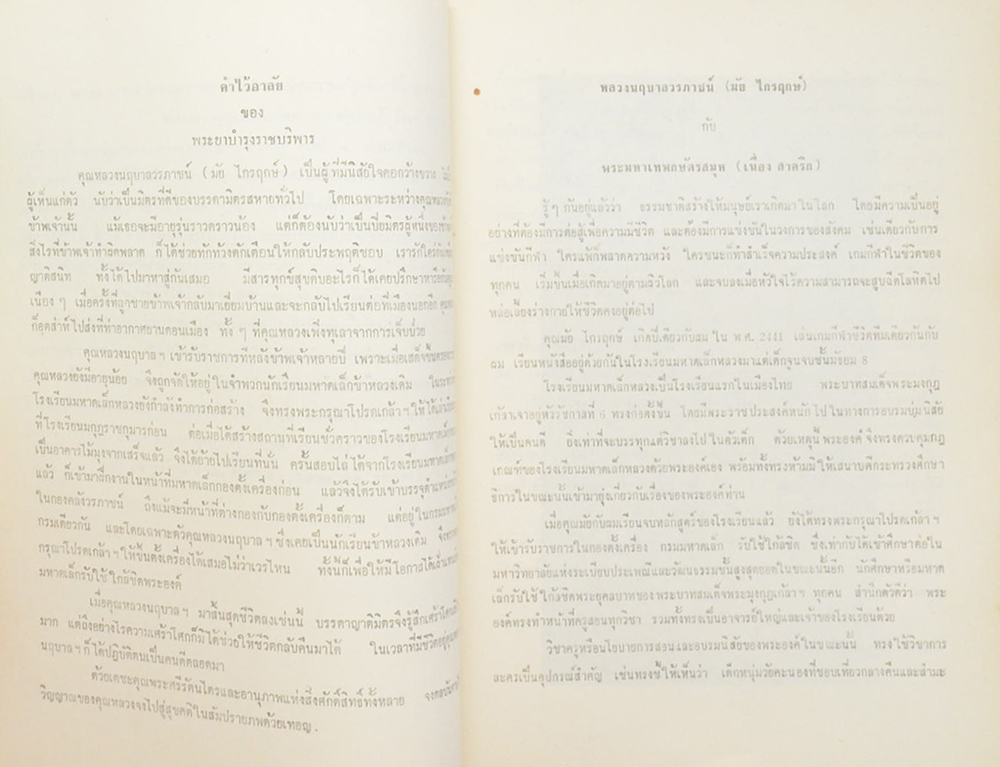 คำไว้อาลัย
ของ
พระยาบำรุงราชบริพาร
คุณหลวงนฤบาลวรภาชน์ (มัย ไกรฤกษ์) เป็นผู้ที่มีนิสัยใจคอกว้างขวาง
ผู้เห็นแก่ตัว นับว่าเป็นมิตรที่ดีของบรรดามิตรสหายทั่วไป โดยเฉพาะระหว่างคุณหลวง
ข้าพเจ้านั้น แม้เธอจะมีอายุรุ่นราวคราวน้อง แต่ก็ต้องนับว่าเป็นปิยมิตรผู้หนึ่งของ
สิ่งไรที่ข้าพเจ้าทำผิดพลาด ก็ได้ช่วยทักท้วงตักเตือนให้กลับประพฤติชอบ เรารักใคร่กัน
ญาติสนิท ทั้งได้ไปมาหาสู่กันเสมอ มีสารทุกข์สุขดิบอะไรก็ได้เคยปรึกษาหารือกัน
เนือง ๆ เมื่อครั้งที่ลูกชายข้าพเจ้ากลับมาเยี่ยมบ้านและจะกลับไปเรียนต่อที่เมืองนอกอีก
ก็อุตส่าห์ไปส่งที่ท่าอากาศยานดอนเมือง ทั้ง ๆ ที่คุณหลวงเพิ่งทุเลาจากการเจ็บป่วย
คุณหลวงนฤบาล ฯ เข้ารับราชการที่หลังข้าพเจ้าหลายปี เพราะเมื่อเสด็จขึ้น
คุณหลวงยังมีอายุน้อย จึงถูกจัดให้อยู่ในจำพวกนักเรียนมหาดเล็กข้าหลวงเดิม
โรงเรียนมหาดเล็กหลวงยังกำลังทำการก่อสร้าง จึงทรงพระกรุณาโปรดเกล้า ฯ ให้
ที่โรงเรียนมกุฎราชกุมารก่อน ต่อเมื่อได้สร้างสถานที่เรียนชั่วคราวของโรงเรียนมหาดเล็ก
เป็นอาคารไม้มุงจากเสร็จแล้ว จึงได้ย้ายไปเรียนที่นั่น ครั้นสอบไล่ได้จากโรงเรียนมหาดเล็ก
แล้ว ก็เข้ามาฝึกงานในหน้าที่มหาดเล็กกองตั้งเครื่องก่อน แล้วจึงได้รับเข้าบรรจุตำแหน่ง
ในกองคลังวรภาชน์ ถึงแม้จะมีหน้าที่ต่างกองกับกองตั้งเครื่องก็ตาม แต่อยู่ในกรม
กรมเดียวกัน และโดยเฉพาะตัวคุณหลวงนฤบาล ฯ ซึ่งเคยเป็นนักเรียนข้าหลวงเดิม
กรุณาโปรดเกล้า ฯ ให้ขึ้นตั้งเครื่องได้เสมอไม่ว่าเวรไหน ทั้งนี้ก็เพื่อให้มีโอกาสได้
มหาดเล็กรับใช้ใกล้ชิดพระองค์
เมื่อคุณหลวงนฤบาล ฯ มาสิ้นสุดชีวิตลงเช่นนี้ บรรดาญาติมิตรจึงรู้สึกเศร้าโศก
มาก แต่ถึงอย่างไรความเศร้าโศกก็มิได้ช่วยให้ชีวิตกลับคืนมาได้ ในเวลาที่มีชีวิตอยู่
นฤบาล ฯ ก็ได้ปฏิบัติตนเป็นคนดีตลอดมา
ด้วยเดชะคุณพระศรีรัตนไตรและอานุภาพแห่งสิ่งศักดิ์สิทธิ์ทั้งหลาย
วิญญาณของคุณหลวงจงไปสู่สุขคติในสัมปรายภพด้วยเทอญ.
หลวงนฤบาลวรภาชน์ (มัย ไกรฤกษ์)
กับ
พระมหาเทพกษัตรสมุห (เนื่อง สาคริก)
รู้ ๆ กันอยู่แล้วว่า ธรรมชาติสร้างให้มนุษย์เราเกิดมาในโลก โดยมีความเป็นอยู่
อย่างที่ต้องมีการต่อสู้เพื่อความมีชีวิต และต้องมีการแข่งขันในวงการของสังคม เช่นเดียวกับการ
แข่งขันกีฬา ใครแพ้ก็พลาดความหวัง ใครชนะก็ทำสำเร็จความประสงค์ เกมกีฬาในชีวิตของ
ทุกคน เริ่มขึ้นเมื่อเกิดมาอยู่ตามวิวโลก และจบลงเมื่อหัวใจไร้ความสามารถจะสูบฉีดโลหิตไป
หล่อเลี้ยงร่างกายให้ชีวิตคงอยู่ต่อไป
คุณมัย ไกรฤกษ์ เกิดปีเดียวกับผม ใน พ.ศ. 2441 เล่นเกมกีฬาชีวิตทีมเดียวกันกับ
ผม เรียนหนังสืออยู่ด้วยกันในโรงเรียนมหาดเล็กหลวงมาแต่เด็กจนจบชั้นมัธยม 8
โรงเรียนมหาดเล็กหลวงเป็นโรงเรียนแรกในเมืองไทย พระบาทสมเด็จพระมงกุฎ
เกล้าเจ้าอยู่หัวรัชกาลที่ 6 ทรงก่อตั้งขึ้น โดยมีพระราชประสงค์หนักไปในทางการอบรมบ่มนิสัย
ให้เป็นคนดี ยิ่งเท่าที่จะบรรทุกแต่วิชาลงไปในตัวเด็ก ด้วยเหตุนี้พระองค์จึงทรงควบคุมกฎ
เกณฑ์ของโรงเรียนมหาดเล็กหลวงด้วยพระองค์เอง พร้อมทั้งทรงห้ามมิให้เสนาบดีกระทรวงศึกษา
ธิการในขณะนั้นเข้ามายุ่งเกี่ยวกับเรื่องของพระองค์ท่าน
เมื่อคุณมัยกับผมเรียนจบหลักสูตรของโรงเรียนแล้ว ยังได้ทรงพระกรุณาโปรดเกล้า ฯ
ให้เข้ารับราชการในกองตั้งเครื่อง กรมมหาดเล็ก รับใช้ใกล้ชิด ซึ่งเท่ากับได้เข้าศึกษาต่อใน
มหาวิทยาลัยแห่งระเบียบประเพณีและวัฒนธรรมชั้นสูงสุดยอดในขณะนั้นอีก นักศึกษาหรือมหาด
เล็กรับใช้ใกล้ชิดพระยุคลบาทของพระบาทสมเด็จพระมงกุฎเกล้า ฯ ทุกคน สำนึกตัวดีว่า พระ
องค์ทรงทำหน้าที่ครูสอนทุกวิชา รวมทั้งทรงเป็นอาจารย์ใหญ่และเจ้าของโรงเรียนด้วย
วิชาครูหรือนโยบายการสอนและอบรมนิสัยของพระองค์ในขณะนั้น ทรงใช้วิชาการ
ละครเป็นอุปกรณ์สำคัญ เช่นทรงชี้ให้เห็นว่า เด็กหนุ่มวัยคะนองที่ชอบเที่ยวกลางคืนและสำมะ